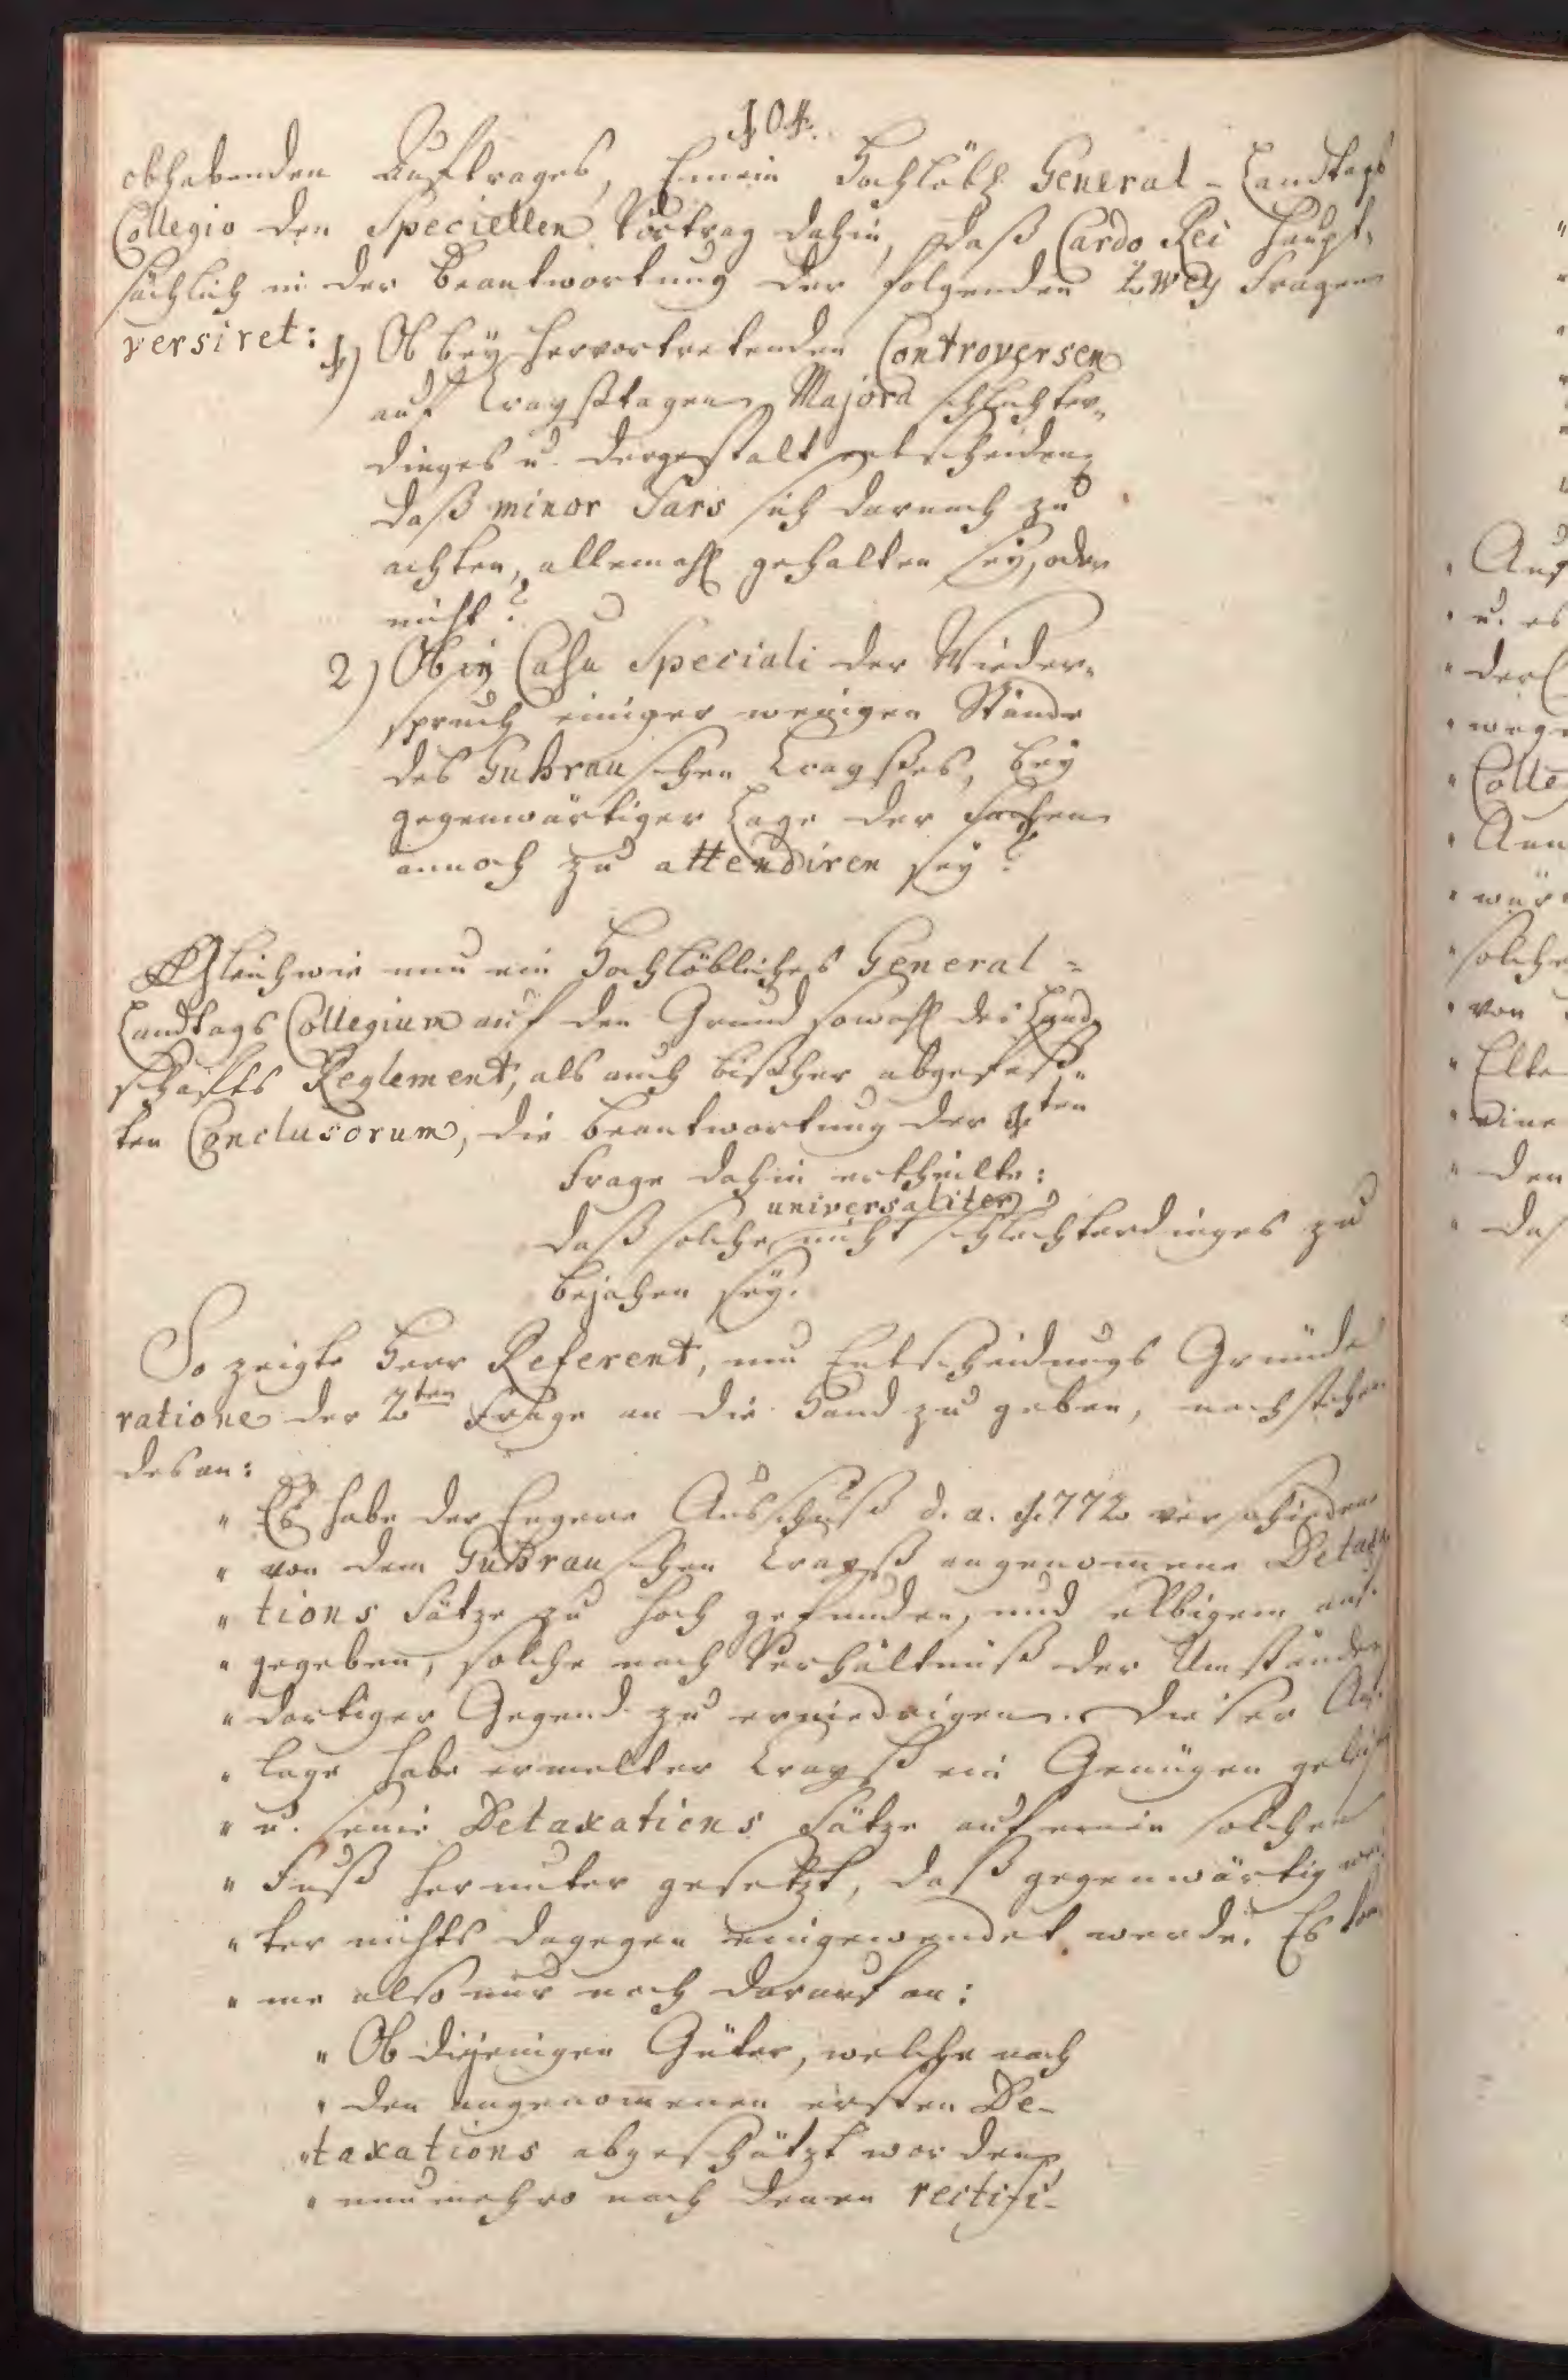 104.
obhabenden Auftrages, Einem Hochlöbl. General-Landtags
Collegio den Speciellen Vortrag dahin, daß Cardo Rei haupt„
sächlich in der Beantwortung der folgenden zwey Fragen
versiret: 1) Ob bey hervortretenden Controversen
auf Creyßtagen Majora schlechter„
dinges u. dergestalt entscheiden,
daß minor Pars sich darnach zu
achten, allemahl gehalten sey, oder
nicht?
2) Ob in Casu Speciali der Wieder„
spruch einiger wenigen Stände
des Guhrauschen Creyßes, bey
gegenwärtiger Lage der Sachen
annoch zu attendiren sey?
Gleichwie nun ein Hochlöbliches General=
Landtags Collegium auf den Grund sowohl des Land„
schafts Reglement, als auch bißher abgefaß„
ten Conclusorum, die Beantwortung der 1ten
Frage dahin ertheilte:
universaliter
daß solche nicht schlechterdinges zu
bejahen sey.
So zeigte Herr Referent, um Entscheidungs Gründe
ratione der 2ten Frage an die Hand zu geben, nachstehen
des an:
„ Es habe der Engere Ausschuß d. a. 1772 verschiedene
„ von dem Guhrauschen Creyß angenomene Detaxa
„ tions Sätze zu hoch gefunden, und selbigem auf
„ gegeben, solche nach Verhältniß der Umstände
„ dortiger Gegend zu erniedrigen. Dieser Auf
„ lage habe ermelter Creyß ein Genügen geleist
„ u. seine Detaxations Sätze auf einen solchen
„ Fuß herunter gesetzt, daß gegenwärtig wei
„ ter nichts dagegen eingewendet werde. Es kom
„ me also nur noch darauf an:
„ Ob diejenigen Güter, welche nach
„ den angenomenen ersten De-
„ taxations abgeschätzt worden,
„ nunmehro nach denen rectifi-
„ Auf
„ u. es
„ der
„ wege
„ Colle
„ An
„ wär
„ solche
„ von
„ eine
„ den
„ das